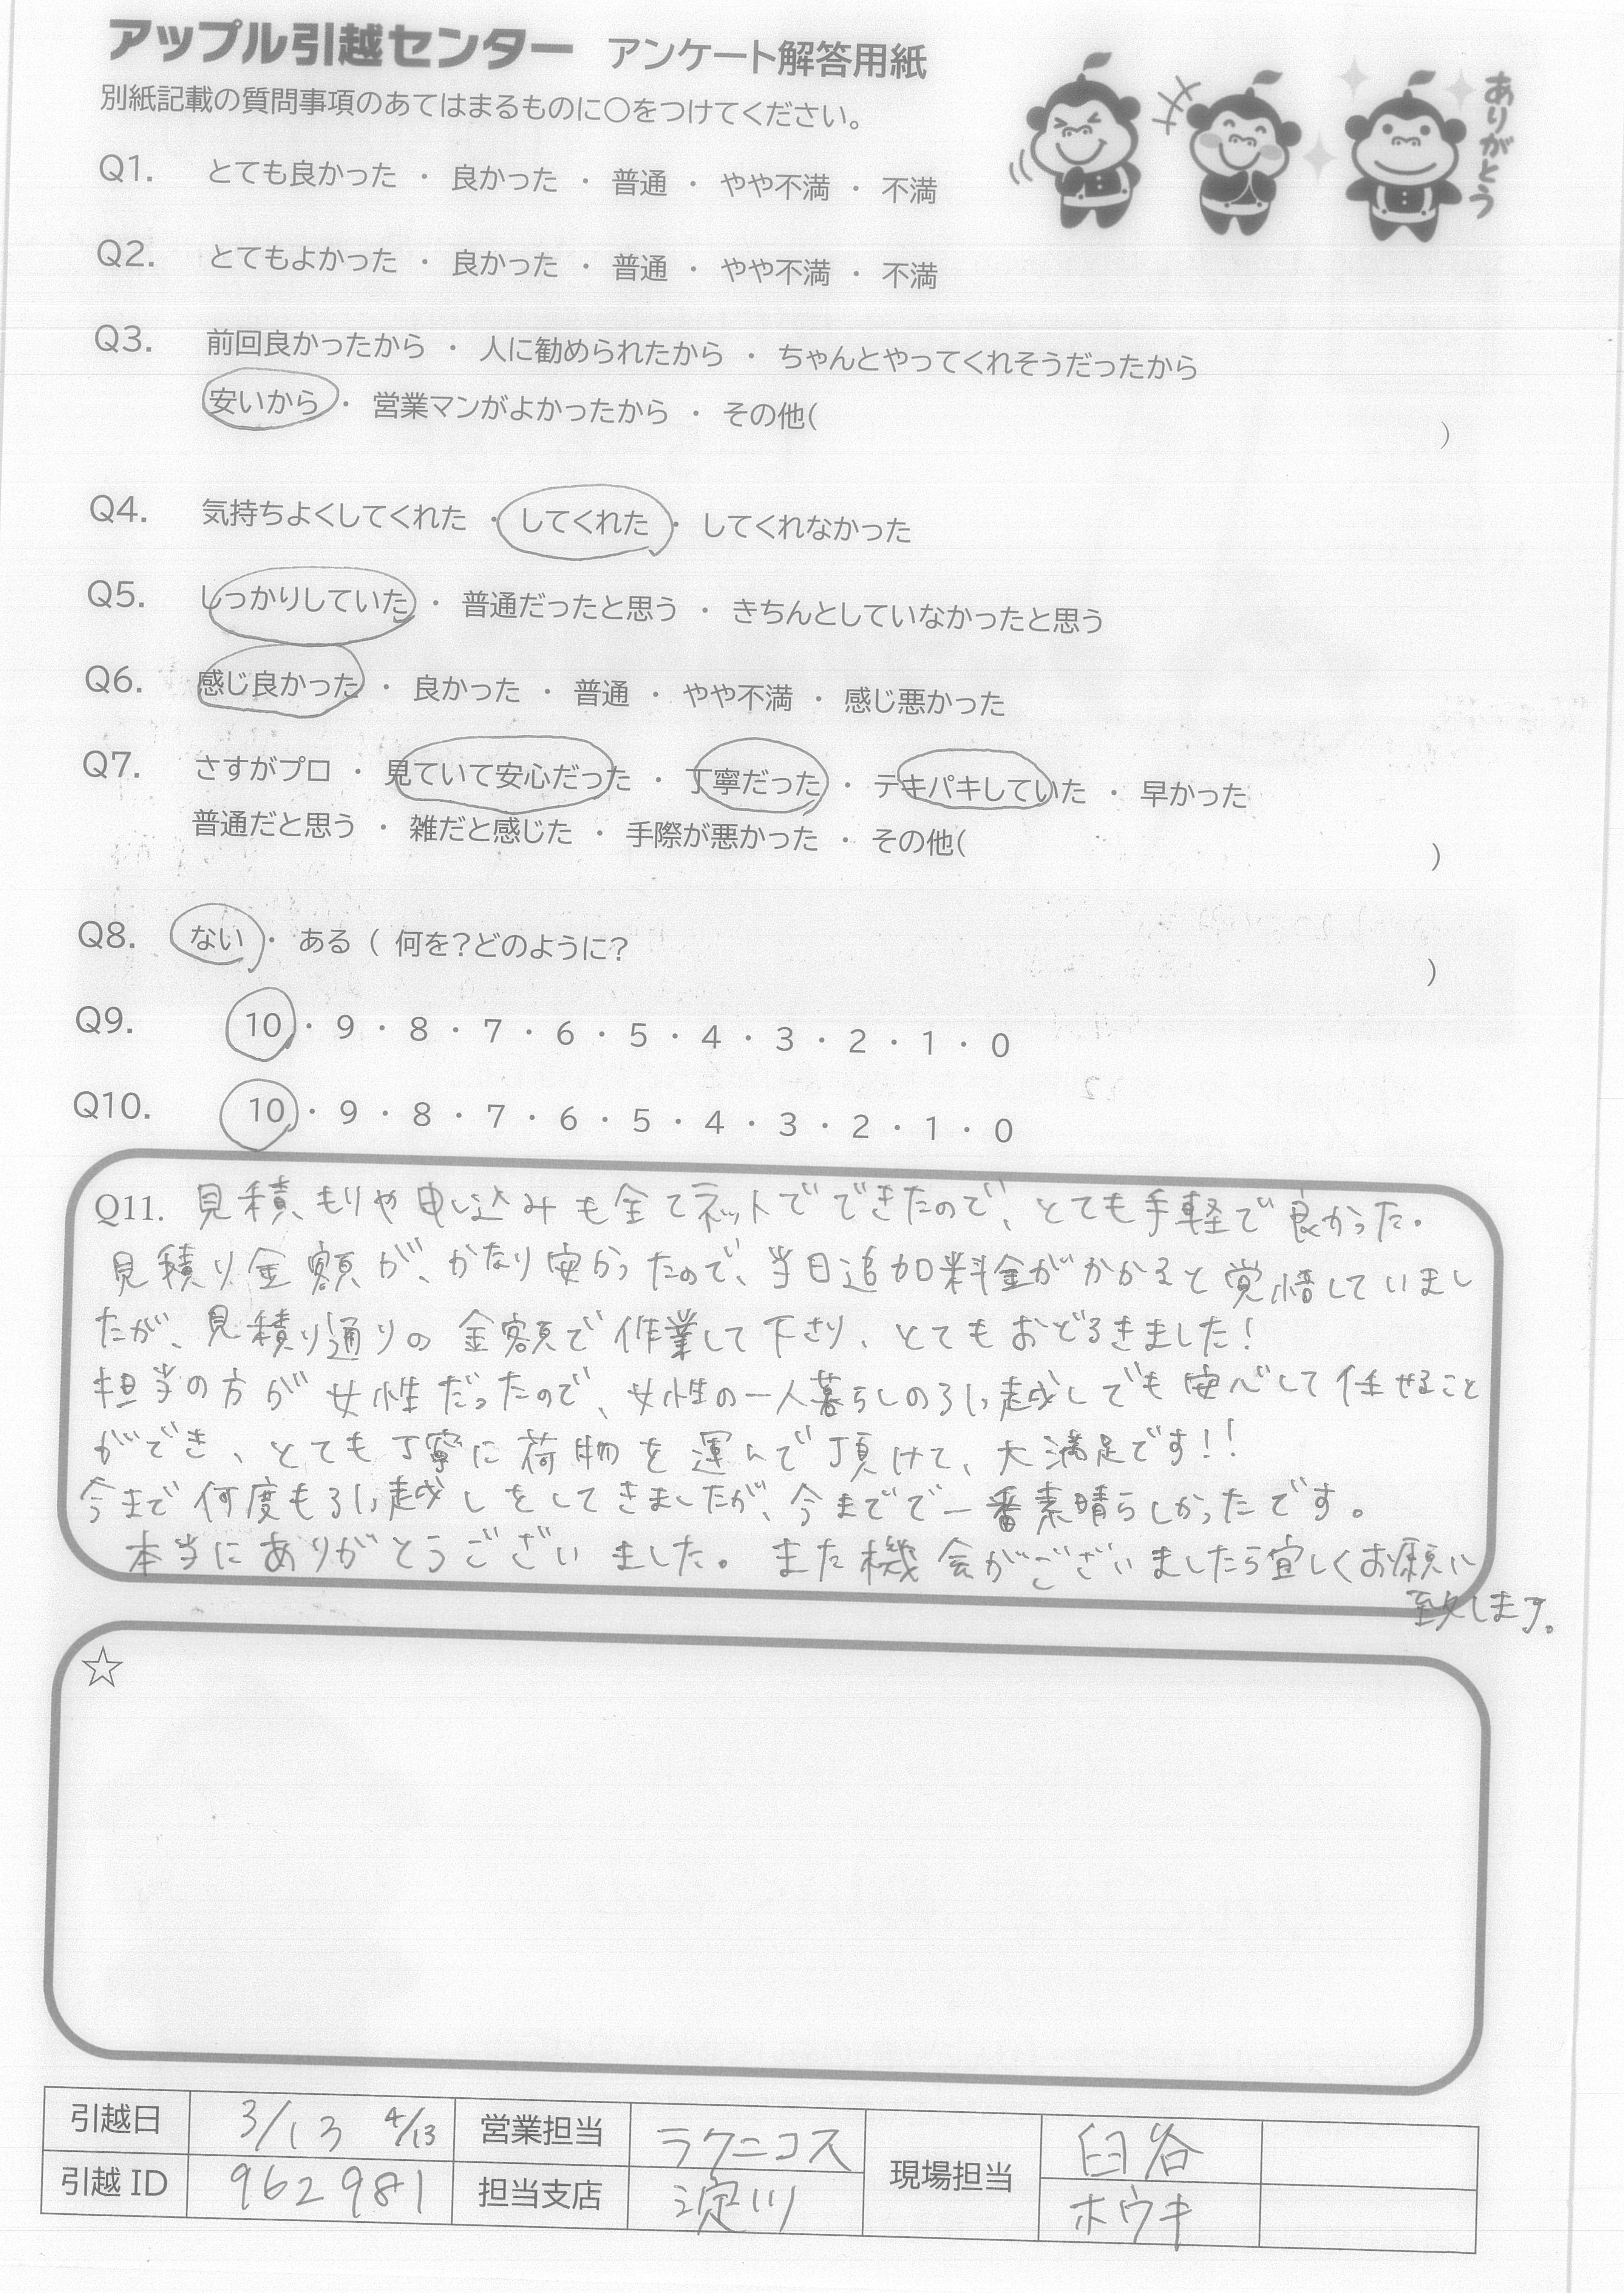 アップル引越センター アンケート解答用紙
別紙記載の質問事項のあてはまるものに〇をつけてください。
ありがとう
Q1. とても良かった ・ 良かった ・ 普通 ・ やや不満 ・ 不満
Q2. とてもよかった ・ 良かった ・ 普通 ・ やや不満 ・ 不満
Q3. 前回良かったから ・ 人に勧められたから ・ ちゃんとやってくれそうだったから
安いから ・ 営業マンがよかったから ・ その他( )
Q4. 気持ちよくしてくれた ・ してくれた ・ してくれなかった
Q5. しっかりしていた ・ 普通だったと思う ・ きちんとしていなかったと思う
Q6. 感じ良かった ・ 良かった ・ 普通 ・ やや不満 ・ 感じ悪かった
Q7. さすがプロ ・ 見ていて安心だった ・ 丁寧だった ・ テキパキしていた ・ 早かった
普通だと思う ・ 雑だと感じた ・ 手際が悪かった ・ その他( )
Q8. ない ・ ある ( 何を?どのように? )
Q9. 10 ・ 9 ・ 8 ・ 7 ・ 6 ・ 5 ・ 4 ・ 3 ・ 2 ・ 1 ・ 0
Q10. 10 ・ 9 ・ 8 ・ 7 ・ 6 ・ 5 ・ 4 ・ 3 ・ 2 ・ 1 ・ 0
Q11. 見積もりや申し込みも全てネットでできたので、とても手軽で良かった。
見積り金額が、かなり安かったので、当日追加料金がかかると覚悟していまし
たが、見積り通りの金額で作業して下さり、とてもおどろきました!
担当の方が女性だったので、女性の一人暮らしの引っ越しでも安心して任せること
ができ、とても丁寧に荷物を運んで頂けて、大満足です!!
今まで何度も引っ越しをしてきましたが、今までで一番素晴らしかったです。
本当にありがとうございました。また機会がございましたら宜しくお願い
致します。
☆
引越日 3/13 4/13 営業担当 ラクニコス 現場担当 臼谷
引越 ID 962981 担当支店 淀川 ホウキ